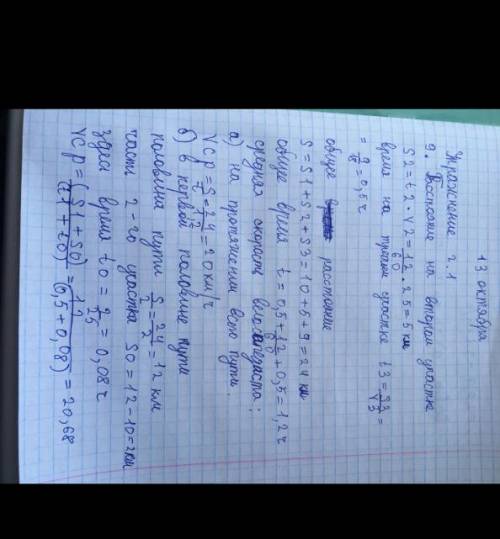 13 октября
Упражнение 2.1
9. Расстояние на втором участке
S2 = t2 · V2 = 12/60 · 25 = 5 км
время на третьем участке t3 = S3/V3 =
= 9/18 = 0,5 ч
общее расстояние
S = S1 + S2 + S3 = 10 + 5 + 9 = 24 км
общее время t = 0,5 + 12/60 + 0,5 = 1,2 ч
средняя скорость велосипедиста:
а) на протяжении всего пути.
Vср = S/t = 24/1,2 = 20 км/ч
б) в первой половине пути
половина пути S/2 = 24/2 = 12 км
часть 2-го участка S0 = 12 - 10 = 2 км
здесь время t0 = 2/25 = 0,08 ч
Vср = (S1 + S0)/(t1 + t0) = 12/(0,5 + 0,08) = 20,68